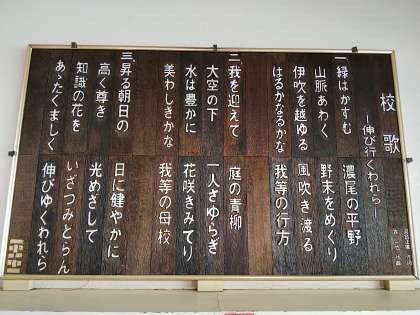 校歌
―伸び行くわれら―
一、緑はかすむ 濃尾の平野
山脈あわく 野末をめぐり
伊吹を越ゆる 風吹き渡る
はるかなるかな 我等の行方
二、我を迎えて 庭の青柳
大空の下 一人さゆらぎ
水は豊かに 花咲きみてり
美わしきかな 我等の母校
三、昇る朝日の 日に健やかに
高く尊き 光めざして
知識の花を いざつみとらん
あゝたくましく 伸びゆくわれら